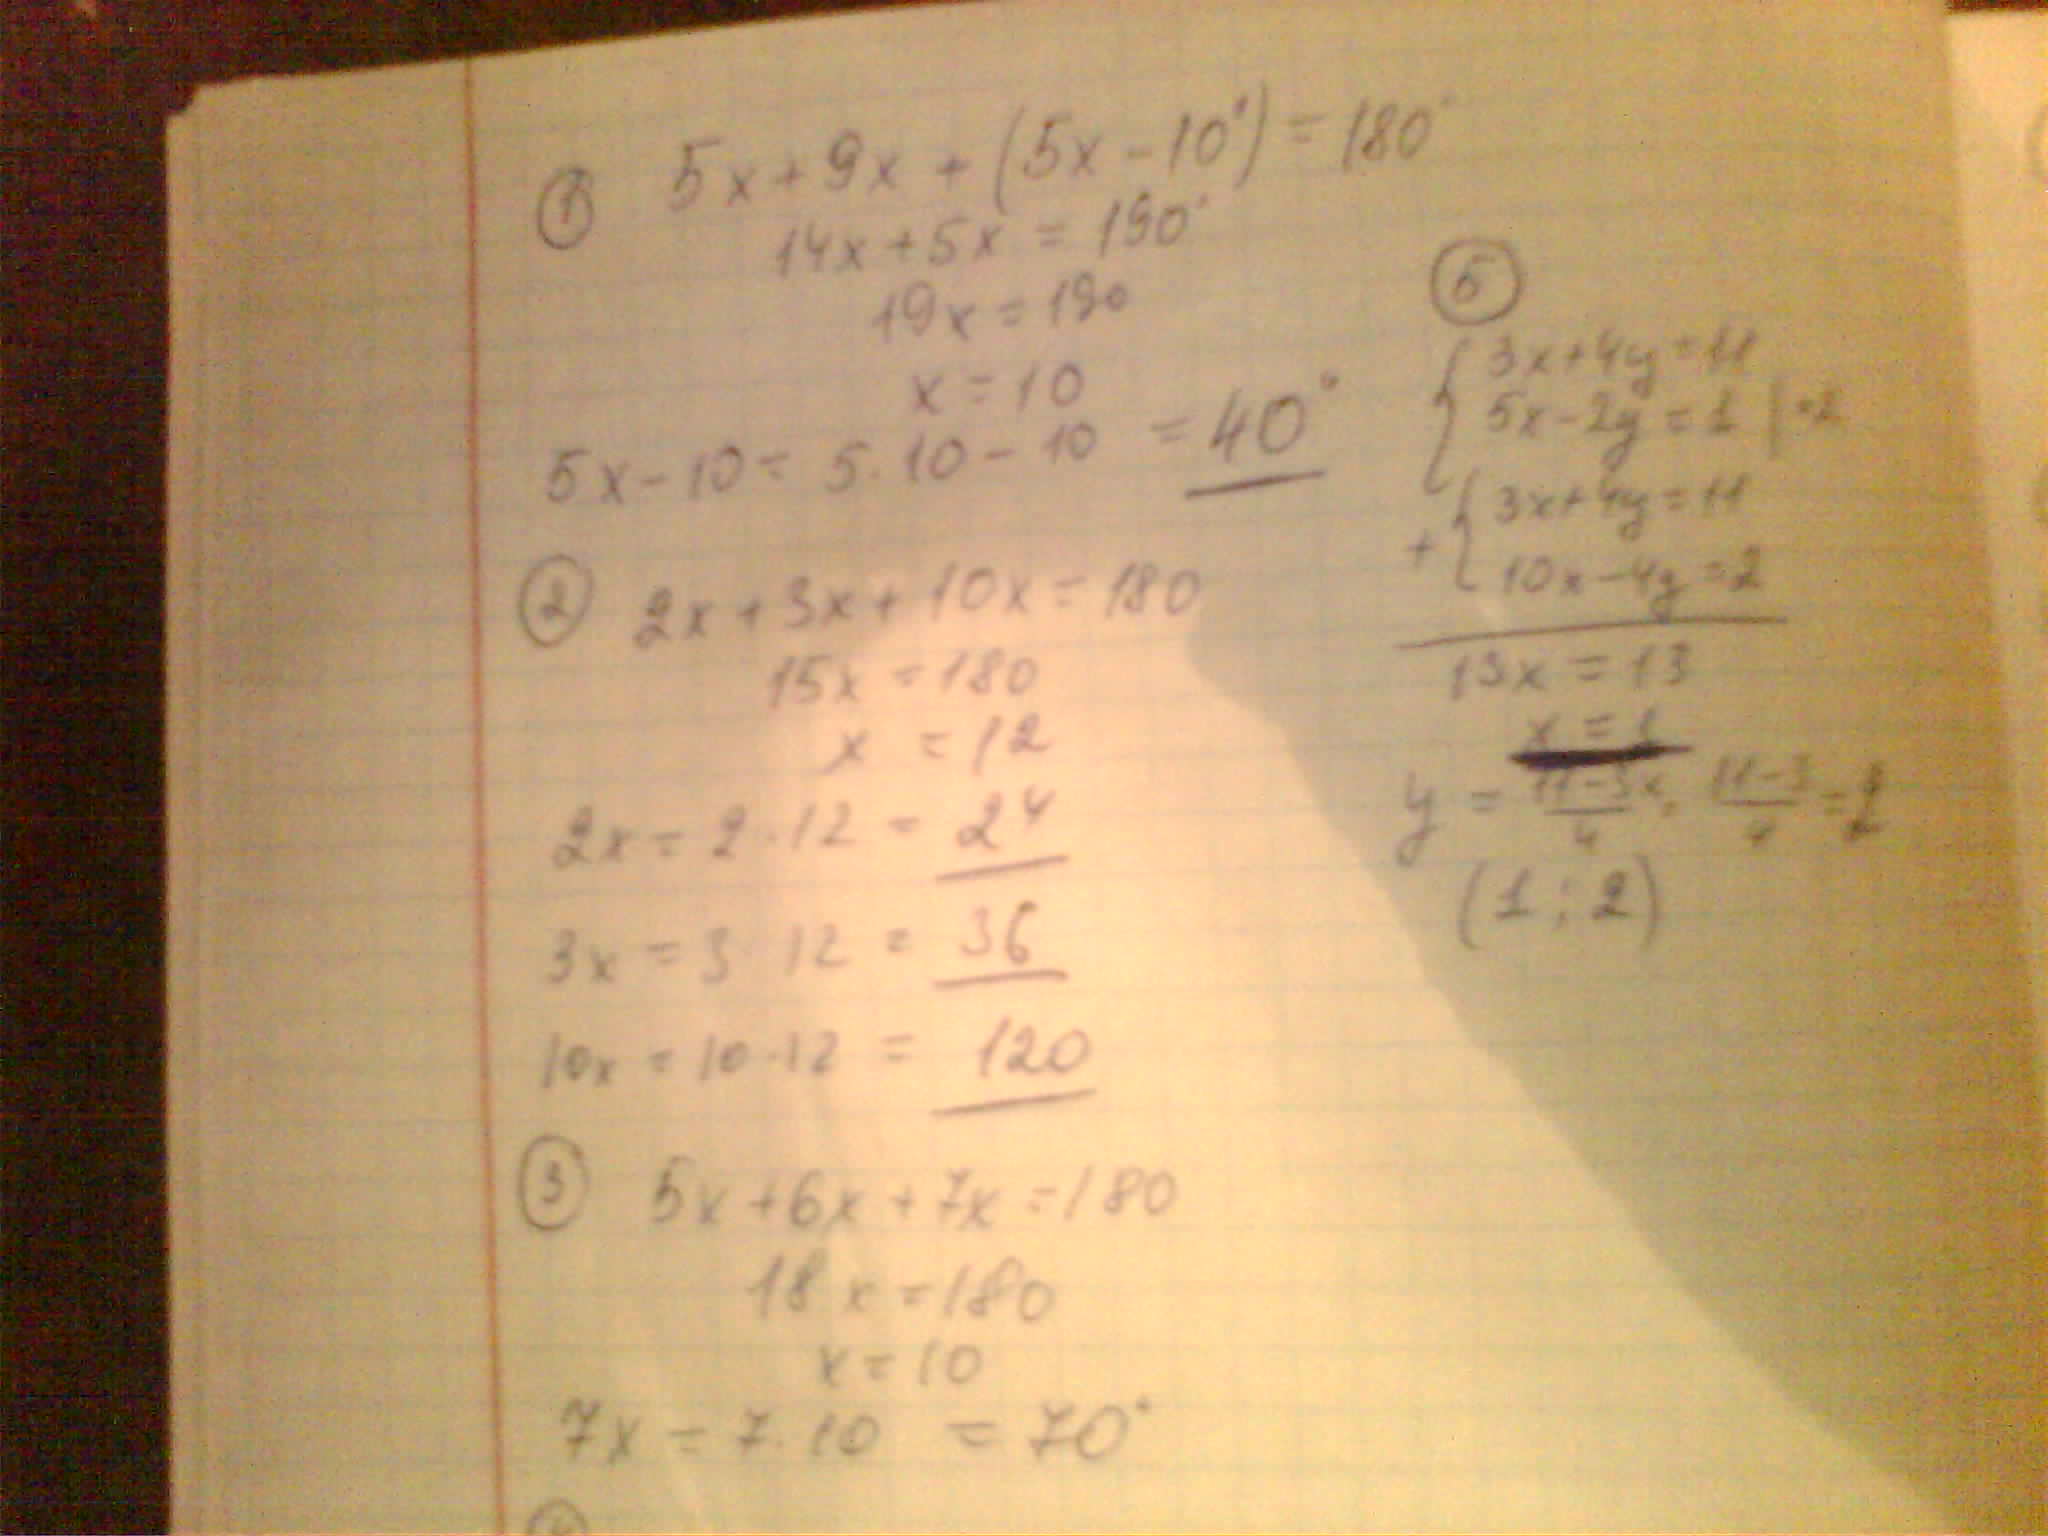 ① 5x+9x+(5x-10°)=180°
14x+5x=190°
19x=190
x=10
5x-10=5·10-10=40°
② 2x+3x+10x=180
15x=180
x=12
2x=2·12=24
3x=3·12=36
10x=10·12=120
③ 5x+6x+7x=180
18x=180
x=10
7x=7·10=70°
⑤
{3x+4y=11
5x-2y=1 |·2
+{3x+4y=11
10x-4y=2
13x=13
x=1
y=\frac{11-3x}{4}=\frac{11-3}{4}=2
(1;2)